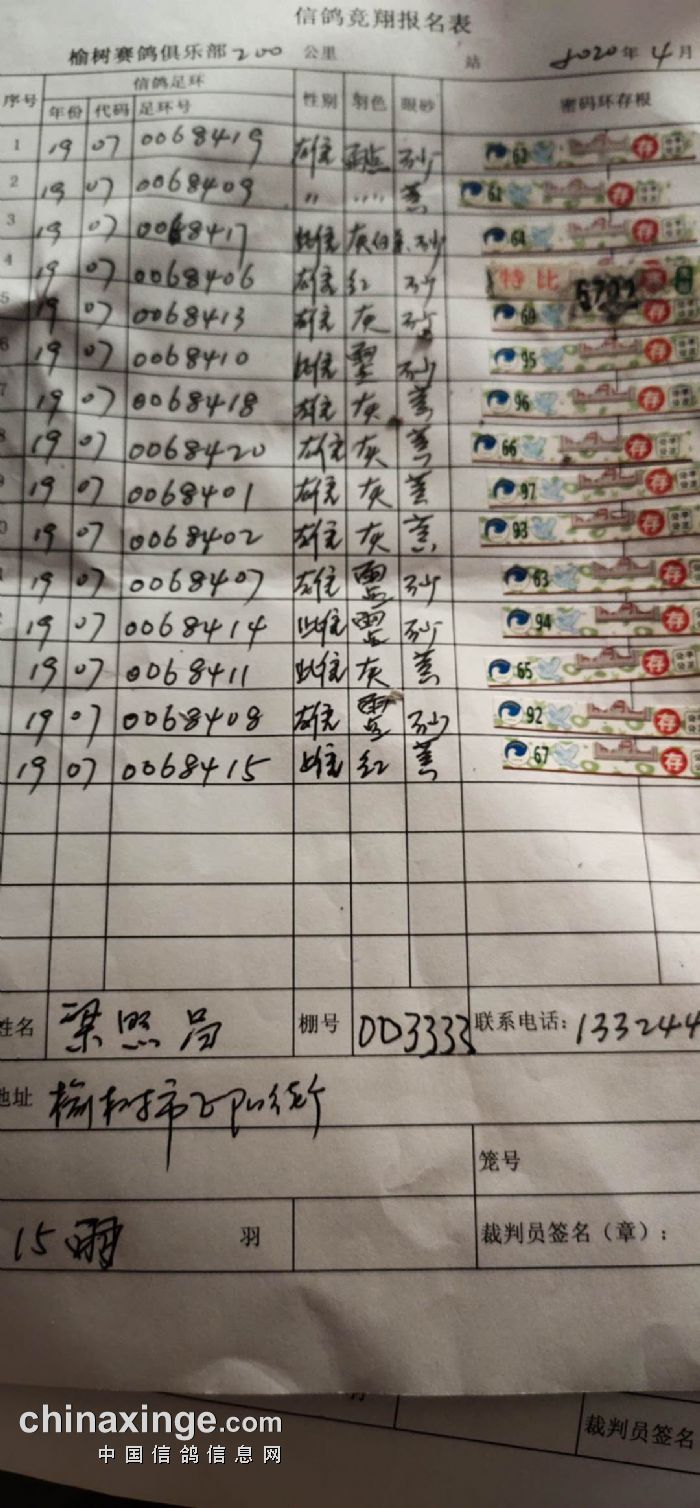 信鸽竞翔报名表
榆树赛鸽俱乐部200 公里 站 2020年4月
序号 信鸽足环 性别 羽色 眼砂 密码环存根
年份 代码 足环号
1 19 07 0068419 雄 雨点 砂 63 存
2 19 07 0068409 〃 〃〃 黄 61 存
3 19 07 0068417 雌 灰白 砂 64 存
4 19 07 0068406 雄 红 砂 特比 存
5 19 07 0068413 雄 灰 砂 60 存
19 07 0068410 雌 砂 95 存
19 07 0068418 雄 灰 黄 96 存
8 19 07 0068420 雄 灰 黄 66 存
19 07 0068401 雄 灰 黄 97 存
0 19 07 0068402 雄 灰 黄 93 存
19 07 0068407 雄 雨点 砂 63 存
19 07 0068414 雌 雨点 砂 94 存
19 07 0068411 雌 灰 黄 65 存
19 07 0068408 雄 雨点 砂 92 存
19 07 0068415 雌 红 黄 67 存
姓名 梁照 棚号 003333 联系电话：133244
地址 榆树市
笼号
15羽 羽 裁判员签名（章）：
裁判员签名
chinaxinge.com
中国信鸽信息网